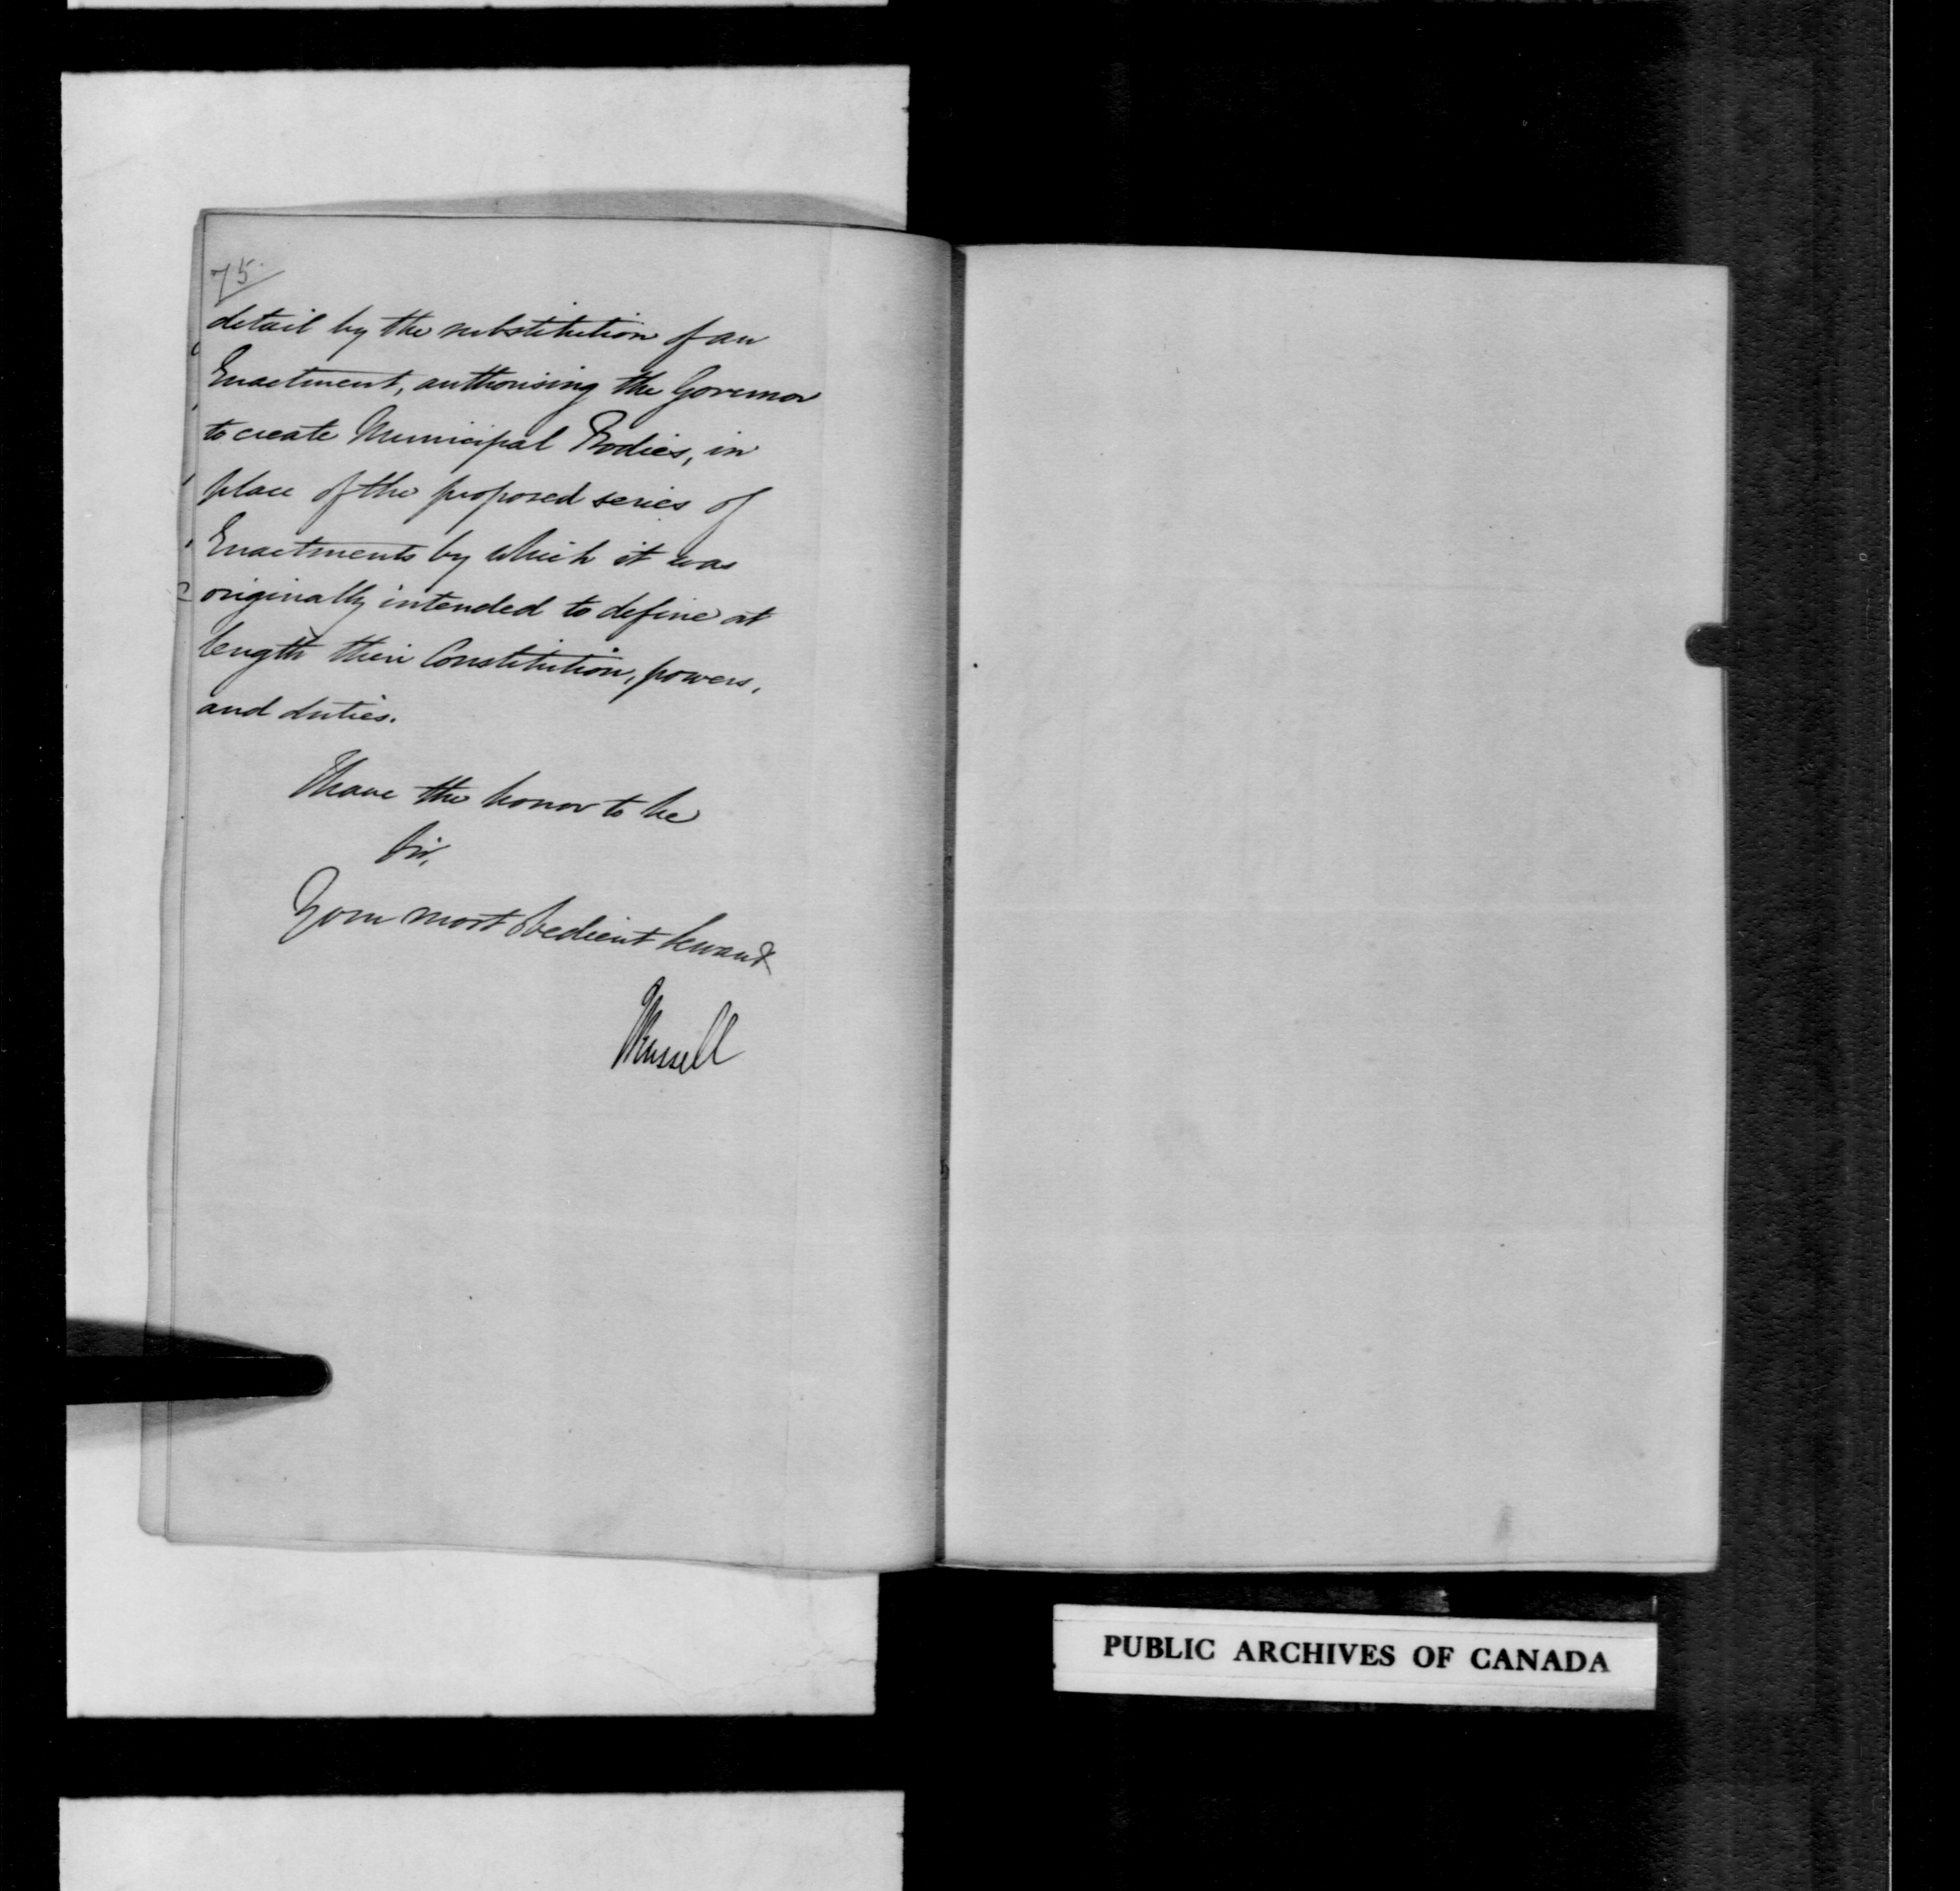 75.
detail by the substitution of an
Enactment, authorising the Governor
to create Municipal Bodies, in
place of the proposed series of
Enactments by which it was
originally intended to define at
length their Constitution, powers,
and duties.
I have the honor to be
Sir,
Your most obedient Servant
JRussell
PUBLIC ARCHIVES OF CANADA